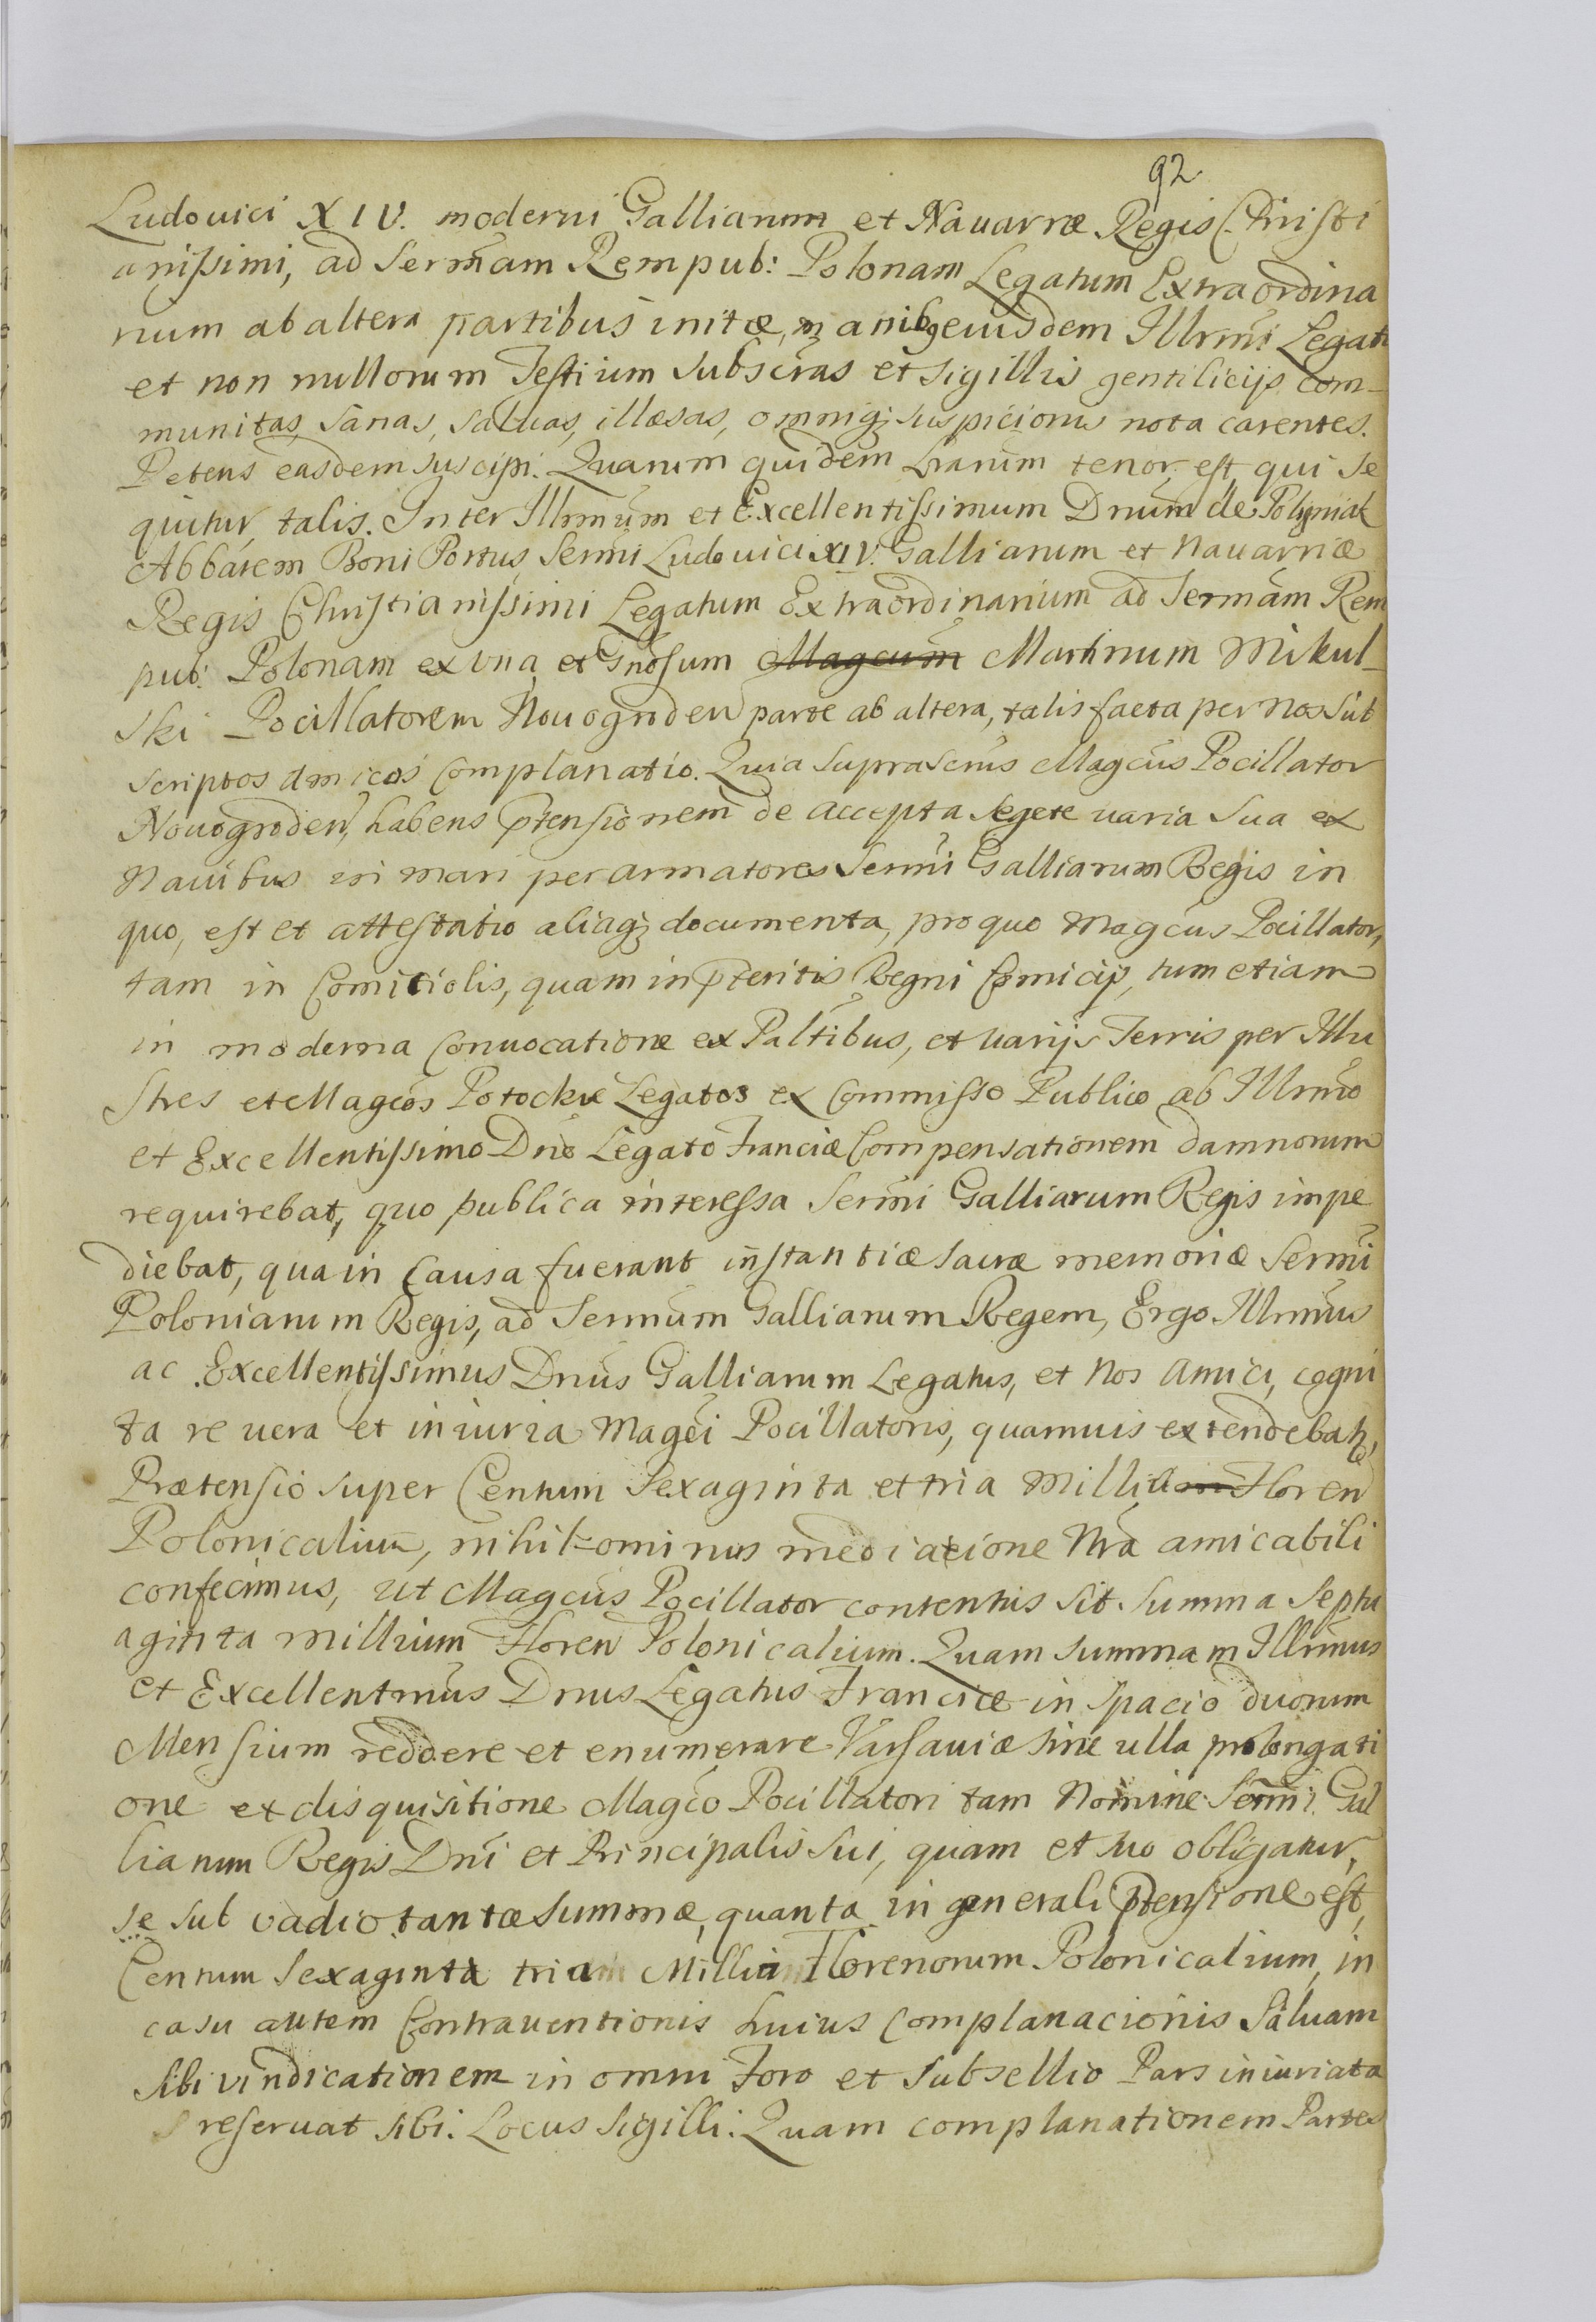 92
Ludouici XIV. moderni Galliarum et Nauarræ Regis Christi
anissimi, ad Sermãm Rempub: Polonam Legatum Extraordina
rium ab altera partibus initæ, manibꝫ eiusdem Illrmĩ Legati
et non nullorum Testium Subscr̃as et sigillis gentilicijs com-
munitas, sanas, saluas, illæsas, omniqꝫ suspicionis nota carentes.
Petens easdem suscipi. Quarum quidem Lr̃arum tenor est qui se
quitur, talis. Inter Illrmũm et Excellentissimum Dnũm de Poligniak
Abbatem Boni Portus, Sermĩ Ludouici XIV. Galliarum et Nauarriæ
Regis Christianissimi Legatum Extraordinarium ad Sermãm Rem
pub: Polonam ex una, et Gnõsum Magcum̃ Martinum Mikul-
ski Pocillatorem Nouogroden̄ parte ab altera, talis facta per nos Sub
scriptos amicos Complanatio. Quia suprascrũs Magcũs Pocillator
Nouogroden̄, habens p̃tensionem de accepta segete uaria sua ex
Nauibus in mari per armatores Sermĩ Galliarum Regis in
quo, est et attestatio aliaqꝫ documenta, pro quo Magcũs Pocillator,
tam in Comitiolis, quam in p̃teritis Regni Comicijs, tum etiam
in moderna Conuocatione ex Paltĩbus, et uarijs Terris per Illu
stres et Magcõs Potockie Legatos ex Commisso Publico ab Illrmõ
et Excellentissimo Dnõ Legato Franciæ Compensationem damnorum
requirebat, quo publica interessa Sermĩ Galliarum Regis impe
diebat, qua in Causa fuerant instantiæ sacræ memoriæ Sermĩ
Poloniarum Regis, ad Sermũm Galliarum Regem, Ergo Illrmũs
ac Excellentissimus Dnũs Galliarum Legatus, et Nos Amici, cogni
ta re uera et iniuria Magcĩ Pocillatoris, quamuis extendebatꝫ
Prætensio super Centum Sexaginta et tria Millia Floren̄
Polonicalium, nihil-ominus mediatione Nrã amicabili
confecimus, ut Magcũs Pocillator contentus sit Summa Septu
aginta millium Floren̄ Polonicalium. Quam summam Illrmũs
et Excellentmũs Dnus Legatus Franciæ in spacio duorum
Mensium reddere et enumerare Varsauiæ sine ulla prolongati
one ex disquisitione Magcõ Pocillatori tam Nomine Sermĩ Gal
liarum Regis Dnĩ et Principalis sui, quam et suo obligatur,
se sub uadio tantæ summæ, quanta in generali p̃tensione est,
Centum Sexaginta tria Millia Florenorum Polonicalium, in
casu autem Contrauentionis huius Complanacionis Saluam
sibi vindicationem in omni Foro et subsellio Pars iniuriata
reseruat sibi. Locus Sigilli: Quam complanationem Partes